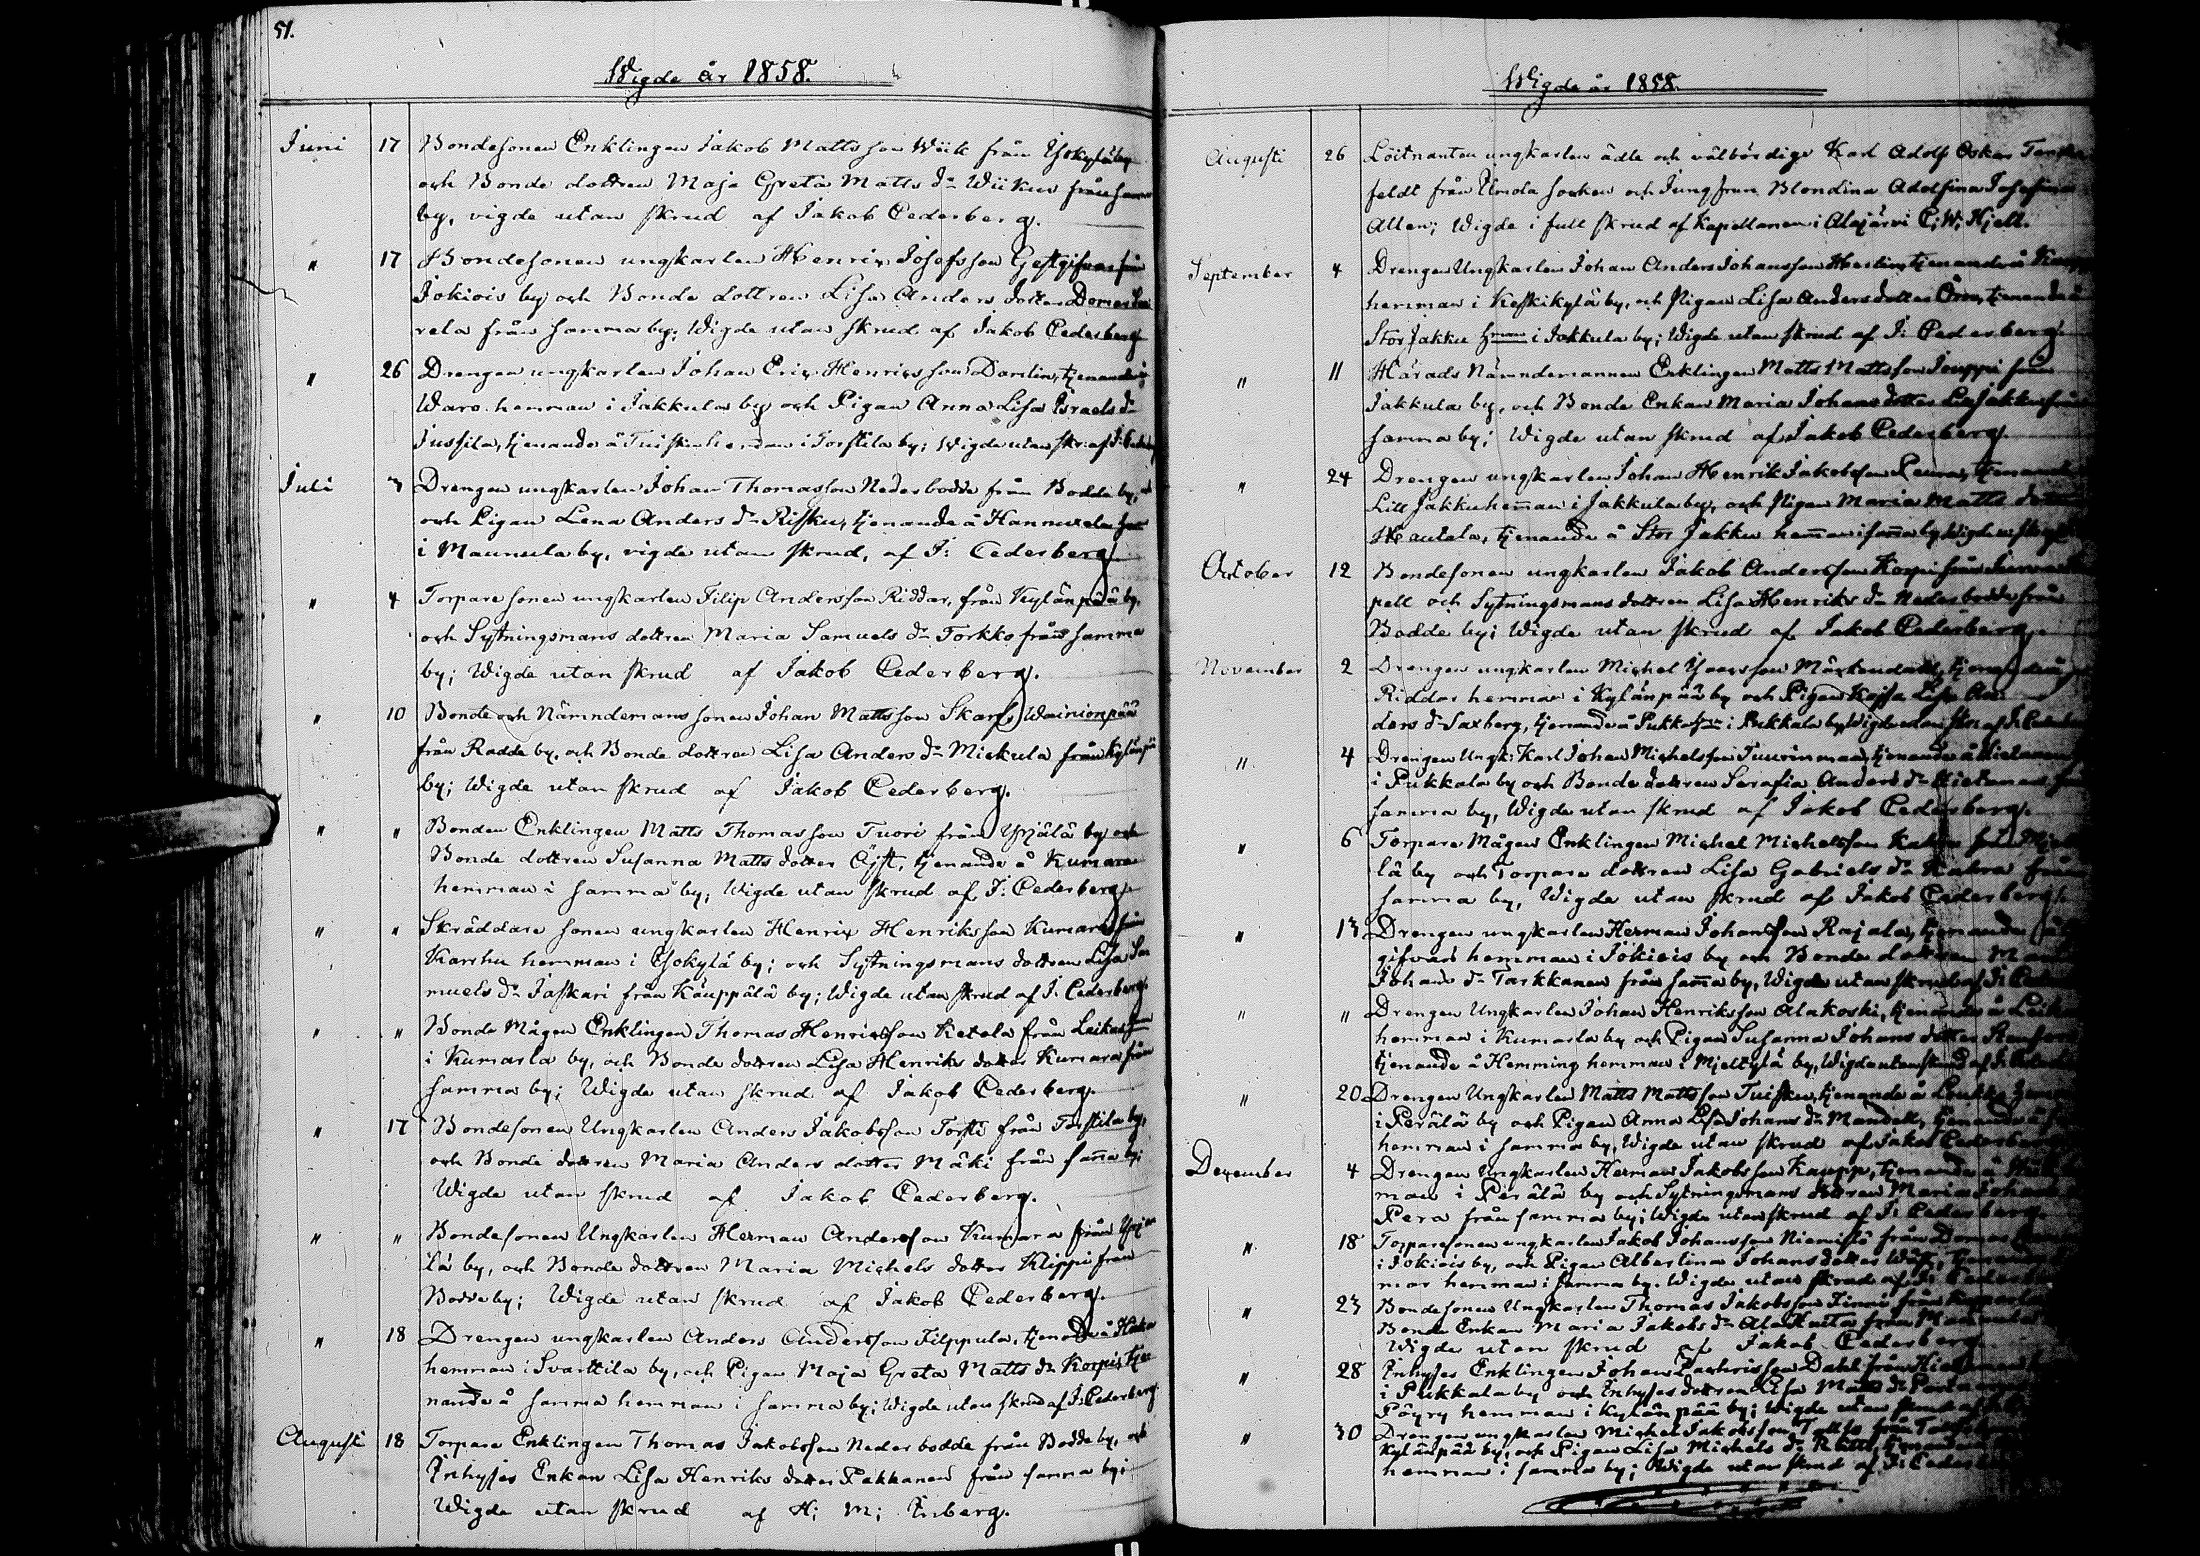 51.
Wigde år 1858.
Juni 17 Bondesonen Enklingen Jakob Mattsson Wiik från Ysokylä by
och Bonde dottren Maja Greta Matts dr Wiikus från samma
by, vigde utan skrud af Jakob Cederberg.
" 17 Bondesonen ungkarlen Henric Josefsson Gestgifvars från
Jokiois by och Bonde dottren Lisa Anders dotter
rela från samma by; Wigde utan skrud af Jakob Cederberg
" 26 Drengen ungkarlen Johan Eric Henricsson Damlin, tjenande
Waro hemman i Jakkula by och Pigan Anna Lisa Israels dr
Jussila, tjenande å Tuiskus hemman i Torstila by; Wigde utan skr: af J: Cederberg
Juli 3 Drengen ungkarlen Johan Thomasson Nederbodde från Bodde by,
och Pigan Lena Anders dr Risku, tjenande å Hannuxela
i Maunula by, vigde utan skrud, af J: Cederberg
" 4 Torpare sonen ungkarlen Filip Andersson Riddar, från Kylänpää by,
och Sytningsmans dottren Maria Samuels dr Torkko från samma
by; Wigde utan skrud af Jakob Cederberg.
" 10 Bonde och Nämndemans sonen Johan Mattsson Skarf Wainionpää
från Radde by, och Bonde dottren Lisa Anders dr Mickula från Kylänpää
by; Wigde utan skrud af Jakob Cederberg.
" " Bonden Enklingen Matts Thomasson Tuori från Ypjälä by och
Bonde dottren Susanna Matts dotter Öjst, tjenande å Kumara
hemman i samma by; Wigde utan skrud af J: Cederberg.
" " Skräddare sonen ungkarlen Henric Henriksson Kumara från
Karshu hemman i Ysokylä by; och Sytningsmans dottren Lisa Sa
muels dr Jaskari från Käuppälä by; Wigde utan skrud af J. Cederberg.
" " Bonde Mågen Enklingen Thomas Henricsson Ketola från Leikas
i Kumarla by, och Bonde dottren Lisa Henriks dotter Kumara från
samma by; Wigde utan skrud af Jakob Cederberg.
" 17 Bondesonen Ungkarlen Anders Jakobsson Torsti från Torstila by,
och Bonde dottren Maria Anders dotter Mäki från sama by;
Wigde utan skrud af Jakob Cederberg.
" " Bondesonen Ungkarlen Herman Andersson Kumara från Ypjä
lä by, och Bonde dottren Maria Michels dotter Klippi från
Bodde by; Wigde utan skrud af Jakob Cederberg.
" 18 Drengen ungkarlen Anders Andersson Filppula, tjenande å
hemman i Svarttila by, och Pigan Maja Greta Matts dr Korpi, tje
nande å samma hemman i samma by; Wigde utan skrud af J: Cederberg
Augusti 18 Torpare Enklingen Thomas Jakobsson Nederbodde från Bodde by, och
Inhyses Enkan Lisa Henriks dotter Pakkanen från samma by;
Wigde utan skrud af H: M: Enberg.
Wigde år 1858.
Augusti 26 Löitnanten ungkarlen ädle och välbördige Karl Adolf Oskar
feldt från Umola socken och Jungfrun Blondina Adolfina Josefina
Allen; Wigde i full skrud af Kapellanen i Alajärvi C: W: Hjelt.
September 4 Drengen Ungkarlen Johan Anders Johansson tjenande å
hemman i Keskikylä by, och Pigan Lisa Anders dotter tjenande å
Stor Jakku i Jakkula by; Wigde utan skrud af J: Cederberg.
" 11 Härads Nämndemannen Enklingen Matts Mattsson Jouppi från
Jakkula by, och Bonde Enkan Maria Johans dotter från
samma by; Wigde utan skrud af Jakob Cederberg.
" 24 Drengen ungkarlen Johan Henrik Jakobsson tjenande
Lill Jakku heman i Jakkula by, och Pigan Maria Matts dotter
Hautala, tjenande å Stor Jakku heman i sama by, Wigde
October 12 Bondesonen ungkarlen Jakob Andersson Korpi från
pell och Sytningsmans dottren Lisa Henriks dr Nederbodde från
Bodde by; Wigde utan skrud af Jakob Cederberg.
November 2 Drengen ungkarlen Michel tjenande å
Riddar hemman i Kylänpää by och Pigan Kajsa Lisa An
ders dr Saxberg, tjenande å Pukko i Pukkala by, Wigde utan skr: af J: Cederberg
" 4 Drengen Ungk: Karl Johan Michelsson tjenande å
i Pukkala by och Bonde dottren Serafia Anders dr från
samma by, Wigde utan skrud af Jakob Cederberg.
" 6 Torpare Mågen Enklingen Michel Michelsson
lä by och Torpare dottren Lisa Gabriels dr från
samma by, Wigde utan skrud af Jakob Cederberg.
" 13 Drengen ungkarlen Herman Johansson Rajala, tjenande
gifvars hemman i Jokiois by och Bonde dottren
Johans dr Tarkkanen från sama by, Wigde utan skrud af J: Ceder
" " Drengen Ungkarlen Johan Henriksson Alakoski, tjenande å
hemman i Kumarla by och Pigan Susanna Johans dotter
tjenande å Hemming hemman i Mjeltylä by, Wigde utan skrud af J:
" 20 Drengen Ungkarlen Matts Mattsson Tuisku, tjenande å Loukko
i Perälä by och Pigan Anna Lisa Johans dr Mandell, tjenande å
hemman i samma by, Wigde utan skrud af Jakob Cederberg
December 4 Drengen Ungkarlen Herman Jakobsson Kauppi, tjenande å
man i Perälä by och Sytningsmans dottren Maria Johans
Pera från samma by; Wigde utan skrud af J: Cederberg.
" 18 Torparesonen ungkarlen Jakob Johansson Niemistö från
i Jokiois by, och Pigan Albertina Johans dotter
mar hemman i samma by. Wigde utan skrud af J: Ceder
" 23 Bondesonen Ungkarlen Thomas Jakobsson Finni från
Bonde Enkan Maria Jakobs dr från
Wigde utan skrud af Jakob Cederberg.
" 28 Inhyses Enklingen Johan Zachrisson Dahl från
i Pukkala by och Inhyses dottren Lisa Matts dr
Pöyry hemman i Kylänpää by; Wigde utan skrud af
" 30 Drengen ungkarlen Michel Jakobsson från
Kylänpää by, och Pigan Lisa Michels dr
hemman i samma by; Wigde utan skrud af J: Ceder